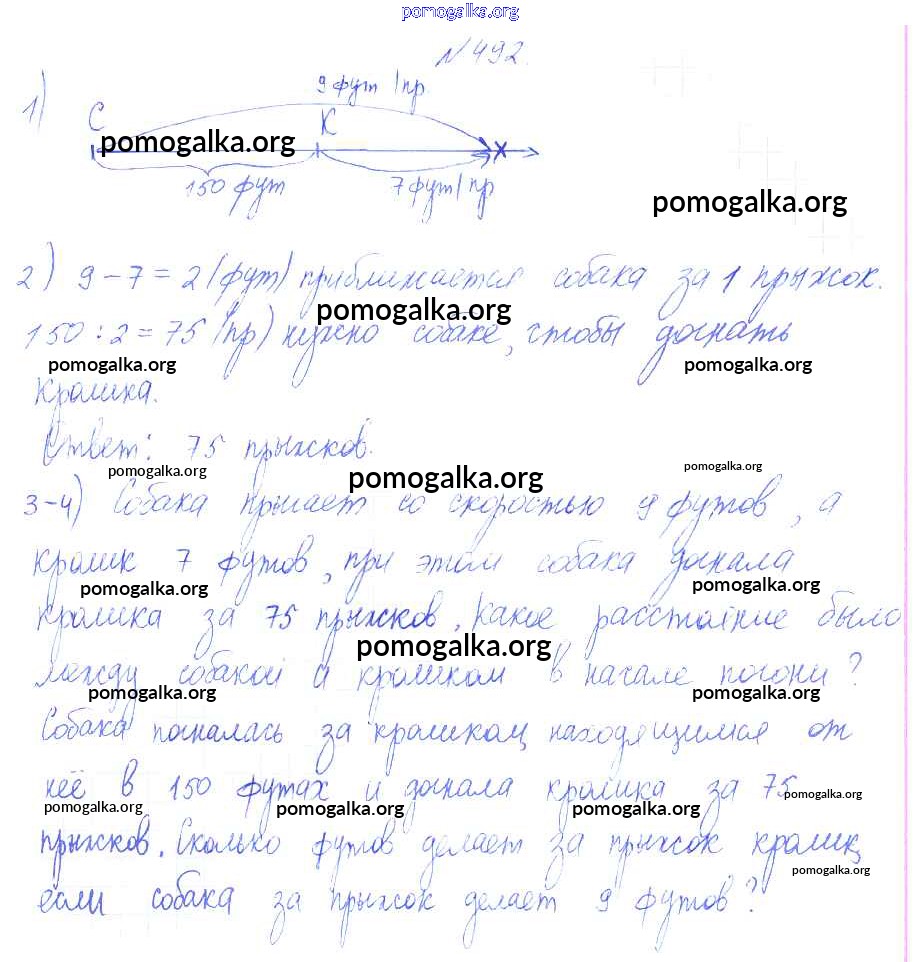 pomogalka.org
№492.
9 фут/пр
1)
С
К
pomogalka.org
150 фут
7 фут/пр
pomogalka.org
2) 9-7=2 (фут) приближается собака за 1 прыжок.
pomogalka.org
150:2=75 (пр) нужно собаке, чтобы догнать
pomogalka.org pomogalka.org
кролика.
Ответ: 75 прыжков.
pomogalka.org pomogalka.org
pomogalka.org
3-4) Собака прыгает со скоростью 9 футов, а
кролик 7 футов, при этом собака догнала
pomogalka.org pomogalka.org
кролика за 75 прыжков. Какое расстояние было
pomogalka.org
между собакой и кроликом в начале погони?
pomogalka.org pomogalka.org
Собака погналась за кроликом, находящимся от
неё в 150 футах и догнала кролика за 75
pomogalka.org pomogalka.org pomogalka.org pomogalka.org
прыжков. Сколько футов делает за прыжок кролик,
pomogalka.org
если собака за прыжок делает 9 футов?